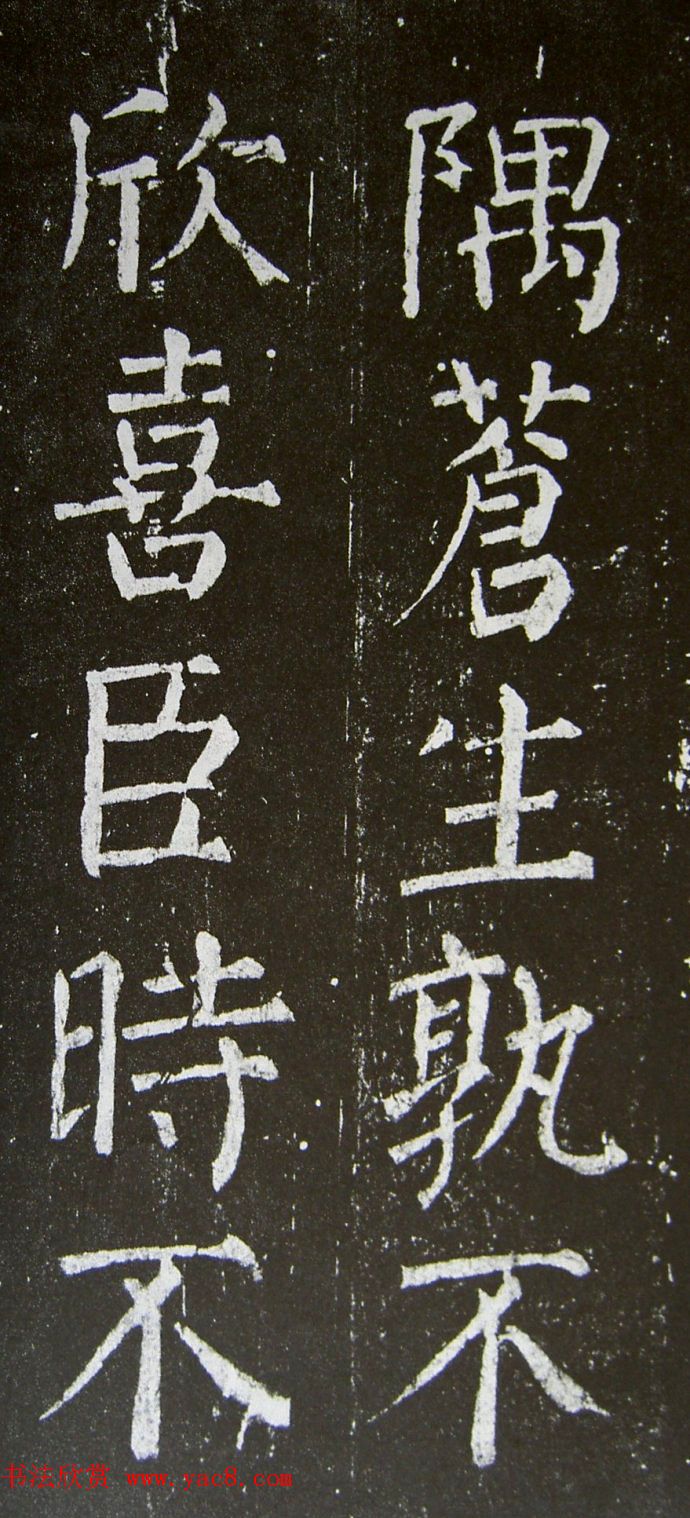 隅蒼生孰不
欣喜臣時不
书法欣赏 www.yac8.com